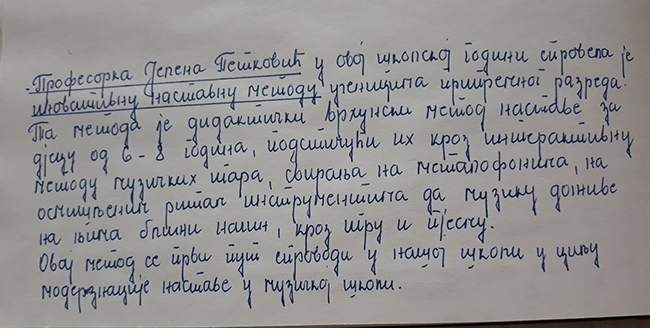 -Професорка Јелена Петковић у овој школској години спровела је
иновативну наставну методу ученицима припремног разреда.
Та метода је дидактички врхунски метод наставе за
дјецу од 6-8 година, подстичући их кроз интерактивну
методу музичких игара, свирања на металофонима, на
осмишљеним ритам инструментима да музику доживе
на њима близни начин, кроз игру и пјесму.
Овај метод се први пут спроводи у нашој школи у циљу
модернзације наставе у музичкој школи.